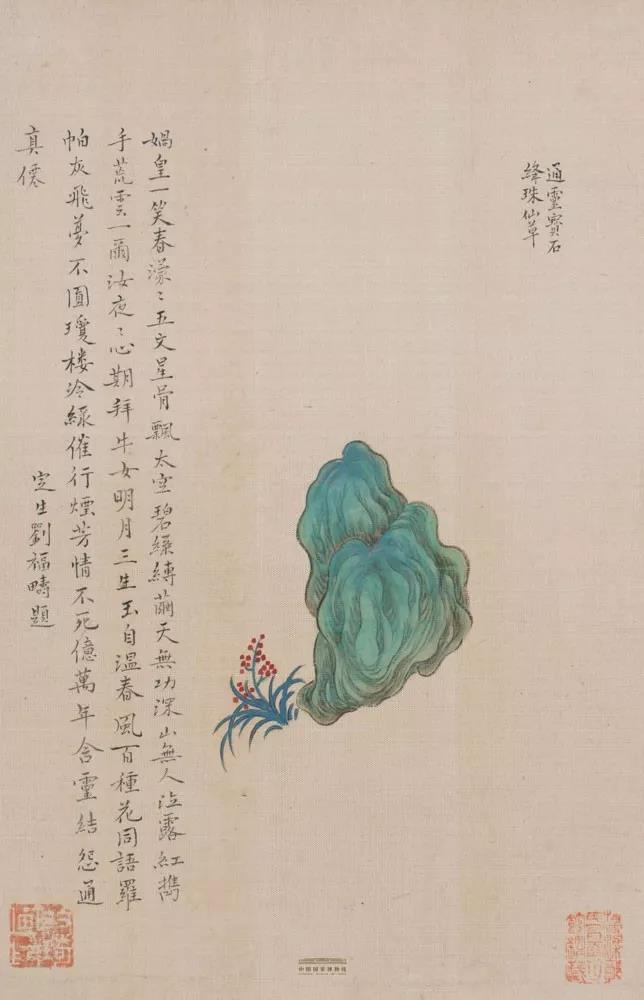 通靈寶石
絳珠仙草
媧皇一笑春濛〻五文星骨飄太空碧繰縛繭天無功深山無人泣露紅擕
手荒雲一爾汝夜〻心期拜牛女明月三生玉自溫春風百種花同語羅
帕灰飛夢不圓瓊樓冷綠催行煙芳情不死億萬年含靈結怨通
真僊
定生劉福疇題
中国国家博物馆